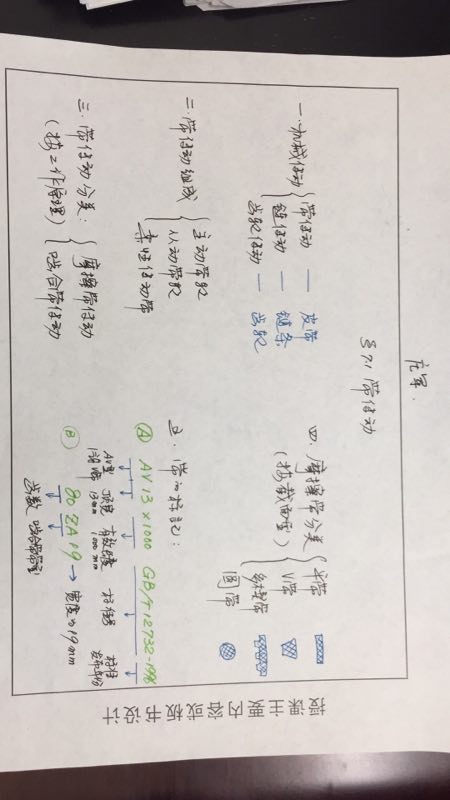 授课主要内容或板书设计
庄军.
§7.1 带传动
一. 机械传动
带传动 — 皮带
链传动 — 链条
齿轮传动 — 齿轮
二. 带传动组成
主动带轮
从动带轮
柔性传动带
三. 带传动分类:
(按工作原理)
摩擦带传动
啮合带传动
四. 摩擦带分类
(按截面型)
平带
V带
多楔带
圆带
五. 带的标记:
Ⓐ AV 13 x 1000 GB/T 12732-1996
AV型
顶宽 13mm
有效长度 1000mm
标准号
标准发布年份
Ⓑ 80 ZA 19 → 宽度为19mm
齿数 啮合带带型